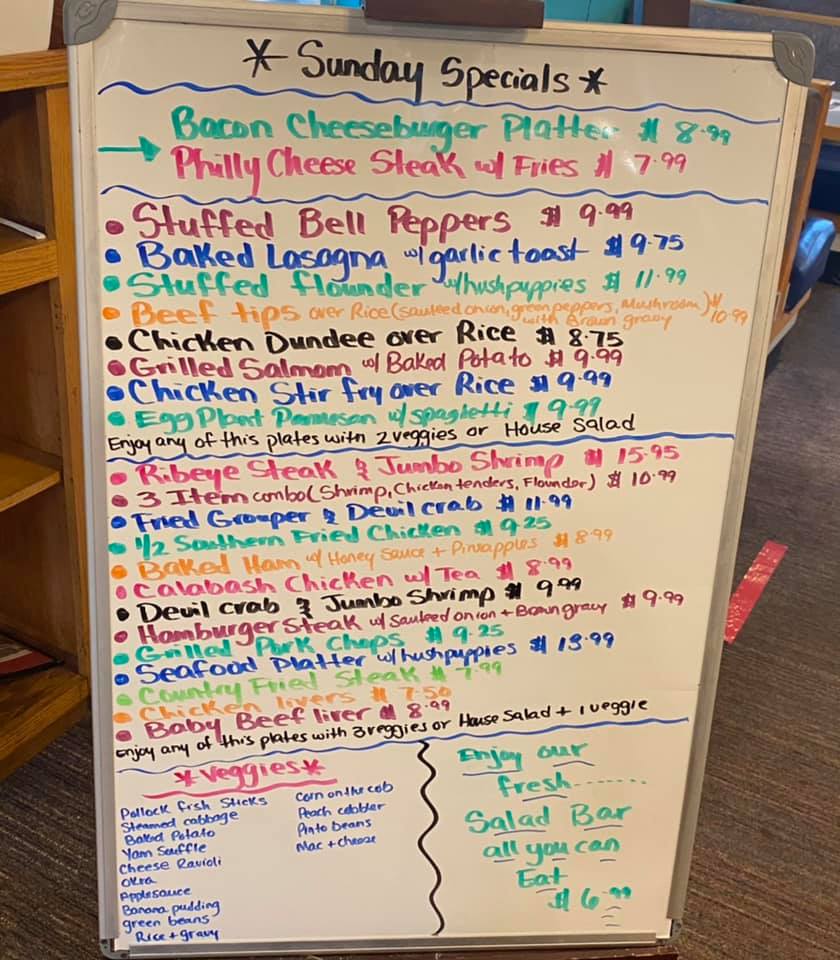 * Sunday Specials *
Bacon Cheeseburger Platter $ 8.99
Philly Cheese Steak w/ Fries $ 7.99
• Stuffed Bell Peppers $ 9.99
• Baked Lasagna w/ garlic toast $ 9.75
• Stuffed flounder w/hushpuppies $ 11.99
• Beef tips over Rice (sauteed onion, green peppers, Mushroom) $ 10.99
with Brown gravy
• Chicken Dundee over Rice $ 8.75
• Grilled Salmom w/ Baked Potato $ 9.99
• Chicken Stir fry over Rice $ 9.99
• Egg Plant Parmesan w/ spaghetti $ 9.99
Enjoy any of this plates with 2 veggies or House Salad
• Ribeye Steak & Jumbo Shrimp $ 15.95
• 3 Item combo (Shrimp, Chicken tenders, Flounder) $ 10.99
• Fried Grouper & Devil crab $ 11.99
• 1/2 Southern Fried Chicken $ 9.25
• Baked Ham w/ Honey Sauce + Pineapples $ 8.99
• Calabash Chicken w/ Tea $ 8.99
• Devil crab & Jumbo Shrimp $ 9.99
• Hamburger Steak w/ Sauteed onion + Brown gravy $ 9.99
• Grilled Pork Chops $ 9.25
• Seafood Platter w/hushpuppies $ 13.99
• Country Fried Steak $ 7.99
• Chicken livers $ 7.50
• Baby Beef liver $ 8.99
Enjoy any of this plates with 3 veggies or House Salad + 1 veggie
* Veggies *
Pollock fish Sticks
Steamed cabbage
Baked Potato
Yam Souffle
Cheese Ravioli
Okra
Applesauce
Banana pudding
green beans
Rice + gravy
Corn on the cob
Peach cobbler
Pinto beans
Mac + cheese
Enjoy our
fresh.......
Salad Bar
all you can
Eat
$ 6.99